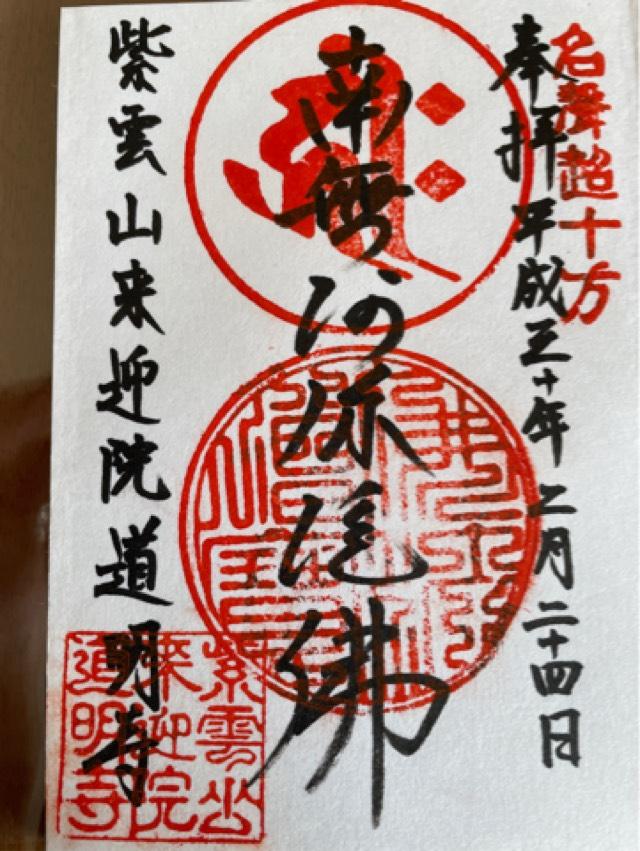 名聲超十方
奉拝 平成三十年 二月二十四日
南無阿弥陀佛
紫雲山来迎院道明寺
紫雲山
来迎院
道明寺